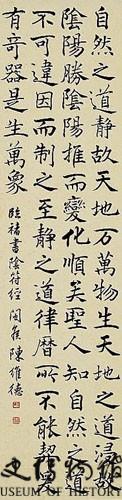 自然之道靜故天地万物生天地之道浸故
陰陽勝陰陽推而變化順矣聖人知自然之道
不可違因而制之至靜之道律曆所不能契爰
有奇器是生萬象
臨褚書陰符經 閩侯陳維德
史博物館
USEUM OF HISTORY